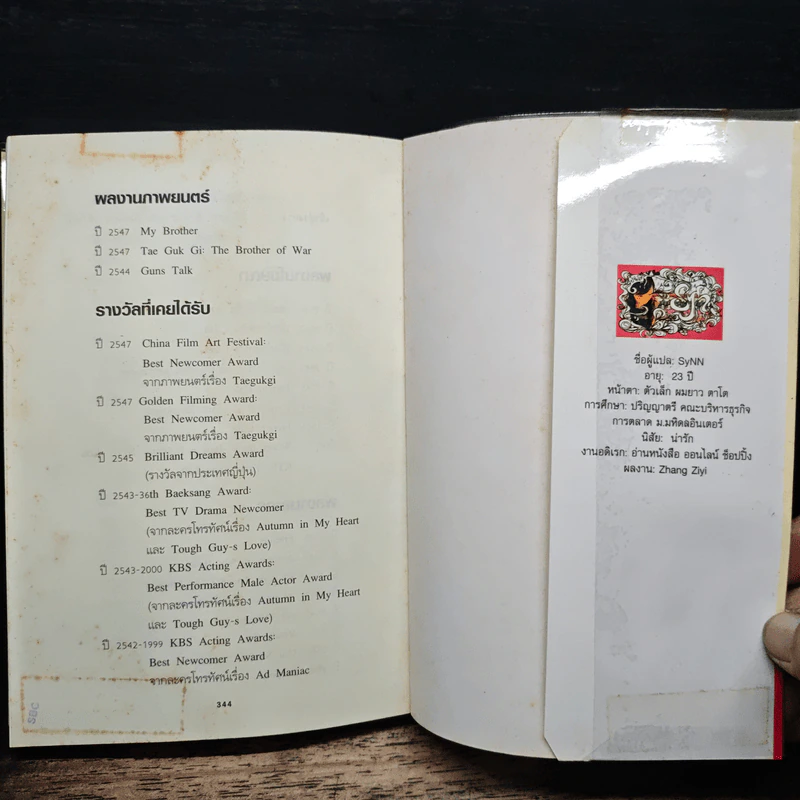 ผลงานภาพยนตร์
ปี 2547 My Brother
ปี 2547 Tae Guk Gi: The Brother of War
ปี 2544 Guns Talk
รางวัลที่เคยได้รับ
ปี 2547 China Film Art Festival:
Best Newcomer Award
จากภาพยนตร์เรื่อง Taegukgi
ปี 2547 Golden Filming Award:
Best Newcomer Award
จากภาพยนตร์เรื่อง Taegukgi
ปี 2545 Brilliant Dreams Award
(รางวัลจากประเทศญี่ปุ่น)
ปี 2543-36th Baeksang Award:
Best TV Drama Newcomer
(จากละครโทรทัศน์เรื่อง Autumn in My Heart
และ Tough Guy-s Love)
ปี 2543-2000 KBS Acting Awards:
Best Performance Male Actor Award
(จากละครโทรทัศน์เรื่อง Autumn in My Heart
และ Tough Guy-s Love)
ปี 2542-1999 KBS Acting Awards:
Best Newcomer Award
จากละครโทรทัศน์เรื่อง Ad Maniac
344
ชื่อผู้แปล: SyNN
อายุ: 23 ปี
หน้าตา: ตัวเล็ก ผมยาว ตาโต
การศึกษา: ปริญญาตรี คณะบริหารธุรกิจ
การตลาด ม.มหิดลอินเตอร์
นิสัย: น่ารัก
งานอดิเรก: อ่านหนังสือ ออนไลน์ ช็อปปิ้ง
ผลงาน: Zhang Ziyi